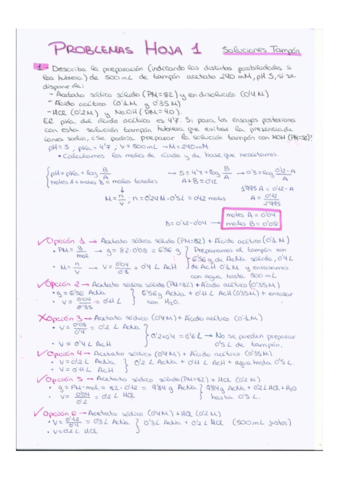 PROBLEMAS HOJA 1 Soluciones Tampón
1. Describa la preparación (indicando las distintas posibilidades a
de 500 mL de tampón acetato 240 mM, pH 5, si se
dispone de:
- Acetato sódico sólido (PM=82) y en disolución (0'4M)
- Ácido acético (0'1M y 0'35M)
- HCl (0'2M) y NaOH (PM=40).
El pKa del ácido acético es 4'7. Si para los ensayos posteriores
con esta solución tampón tuvieras que evitar la presencia de
iones sodio, ¿se podría preparar la solución tampón con KOH
pH=5, pKa=4'7, V=500mL → M=240mM
• Calculamos los moles de ácido y de base que necesitamos.
pH = pKa + log B/A → 5 = 4'7 + log B/A → 0'3 = log 0'12-A/A
moles A + moles B = moles totales A+B=0'12
1'995 A = 0'12-A
M = n/V; n = 0'24M · 0'5L = 0'12 moles A = 0'12/2'995
B = 0'12-0'04 → moles A = 0'04
moles B = 0'08
Opción 1 → Acetato sódico sólido (PM=82) + Ácido acético (0'1M)
• PM = g/mol → g = 82 · 0'08 = 6'56g Preparamos el tampón con
6'56g de AcNa sólido, 0'4L
• M = n/V → V = 0'04/0'1 = 0'4 L AcH de AcH 0'1M y enrasamos
con agua hasta 500 mL
Opción 2 → Acetato sódico sólido (PM=82) + Ácido acético (0'35M)
• g = 6'56 AcNa 6'56g AcNa + 0'11 L AcH (0'35M) + enrasar
• V = 0'04/0'35 = 0'11 L con H2O.
Opción 3 → Acetato sódico (0'4M) + Ácido acético (0'1M)
• V = 0'08/0'4 = 0'2 L AcNa 0'2+0'4 = 0'6 L → No se pueden preparar
• V = 0'4L AcH 0'5L de tampón.
Opción 4 → Acetato sódico (0'4M) + Ácido acético (0'35M)
• V = 0'2 L AcNa 0'2 L AcNa + 0'11 L AcH + agua hasta 0'5L
• V = 0'11 L AcH
Opción 5 → Acetato sódico sólido (PM=82) + HCl (0'2M)
• g = PM · mol = 82 · 0'12 = 9'84g AcNa 9'84g AcNa + 0'2L HCl + H2O
• V = 0'04/0'2 = 0'2 L HCl hasta 0'5L.
Opción 6 → Acetato sódico (0'4M) + HCl (0'2M)
• V = 0'12/0'4 = 0'3L AcNa 0'3L AcNa + 0'2 L HCl (500mL justos)
• V = 0'2L HCl